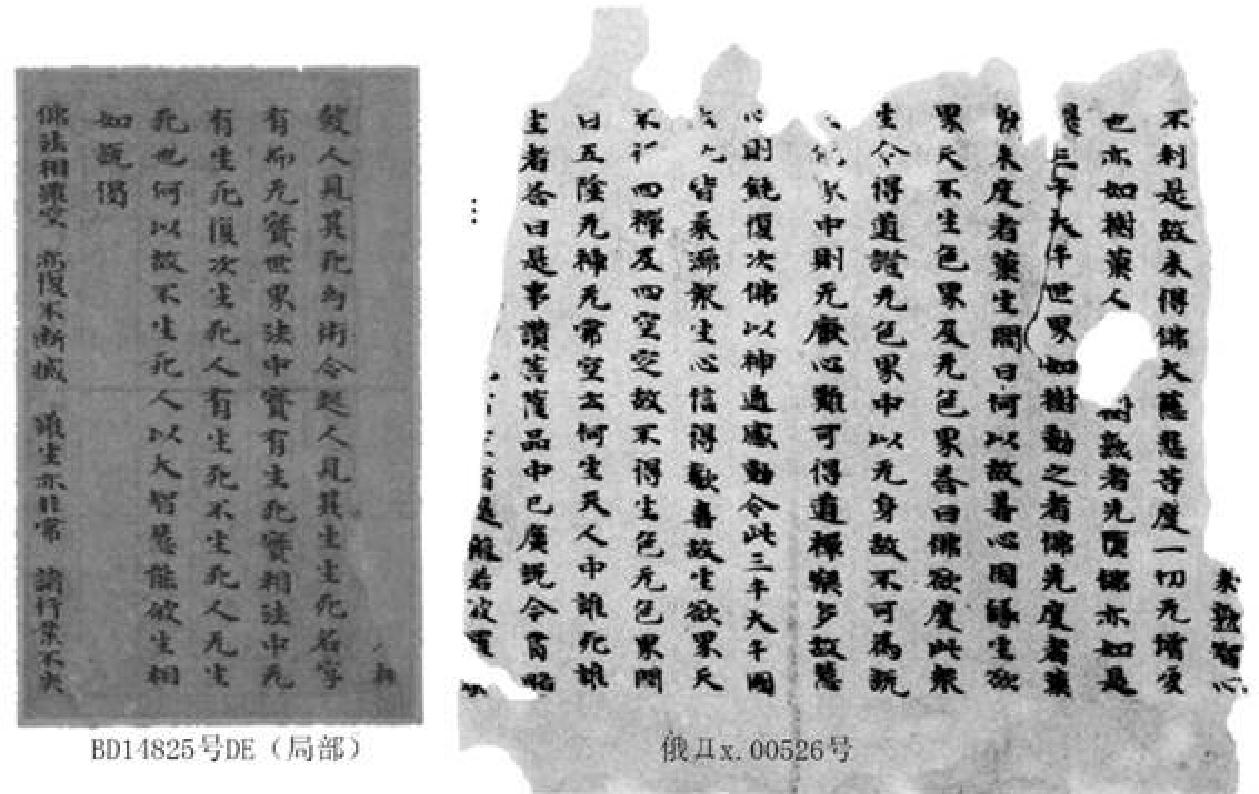 未熟智心
不利是故未得佛大慈悲等度一切无憎愛
也亦如樹菓人樹熟者先墮佛亦如是
是三千大千世界如樹動之者佛先度者菓
未度者菓生問曰何以故善心因緣生欲
界天不生色界及无色界答曰佛欲度此眾
生令得道證无色界中以无身故不可為說
中則无厭心難可得道禪樂多故慧
心則鈍復次佛以神通感動令此三千大千國
皆柔濡眾生心信得歡喜故生欲界天
不行四禪及四空定故不得生色无色界問
曰五陰无神无常空云何生天人中誰死誰
生者答曰是事讚菩薩品中已廣說今當略
者是般若波羅
…
相
殺人見其死幻術令起人見其生生死名字
有而无實世界法中實有生死實相法中无
有生死復次生死人有生死不生死人无生
死也何以故不生死人以大智慧能破生相
如說偈
佛法相雖空 亦復不斷滅 雖生亦非常 諸行業不失
BD14825号DE（局部）
俄Дx.00526号